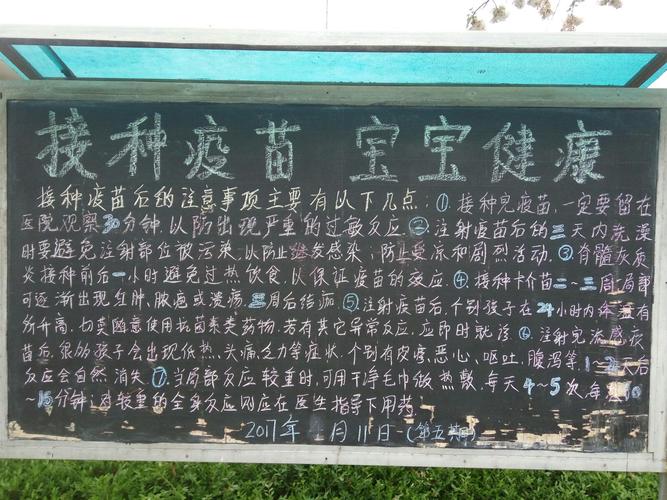 接种疫苗 宝宝健康
接种疫苗后的注意事项主要有以下几点：①接种完疫苗，一定要留在
医院观察30分钟，以防出现严重的过敏反应②注射疫苗后的三天内洗澡
时要避免注射部位被污染，以防止继发感染；防止受凉和剧烈活动，③脊髓灰质
炎接种前后一小时避免过热饮食，以保证疫苗的效应④，接种卡介苗二~三周，局部
可逐渐出现红肿，脓疱或溃疡，三周后结痂，⑤注射疫苗后，个别孩子在24小时内体温有
所升高，切莫随意使用抗菌素类药物，若有其它异常反应，应即时就诊⑥，注射完流感疫
苗后，很多孩子会出现低热，头痛乏力等症状，个别有皮疹，恶心，呕吐，腹泻等，1-2天后
反应会自然消失⑦，当局部反应较重时，可用干净毛巾做热敷，每天4~5次，每次10
~15分钟；对较重的全身反应则应在医生指导下用药
2017年 月11日 (第五期)